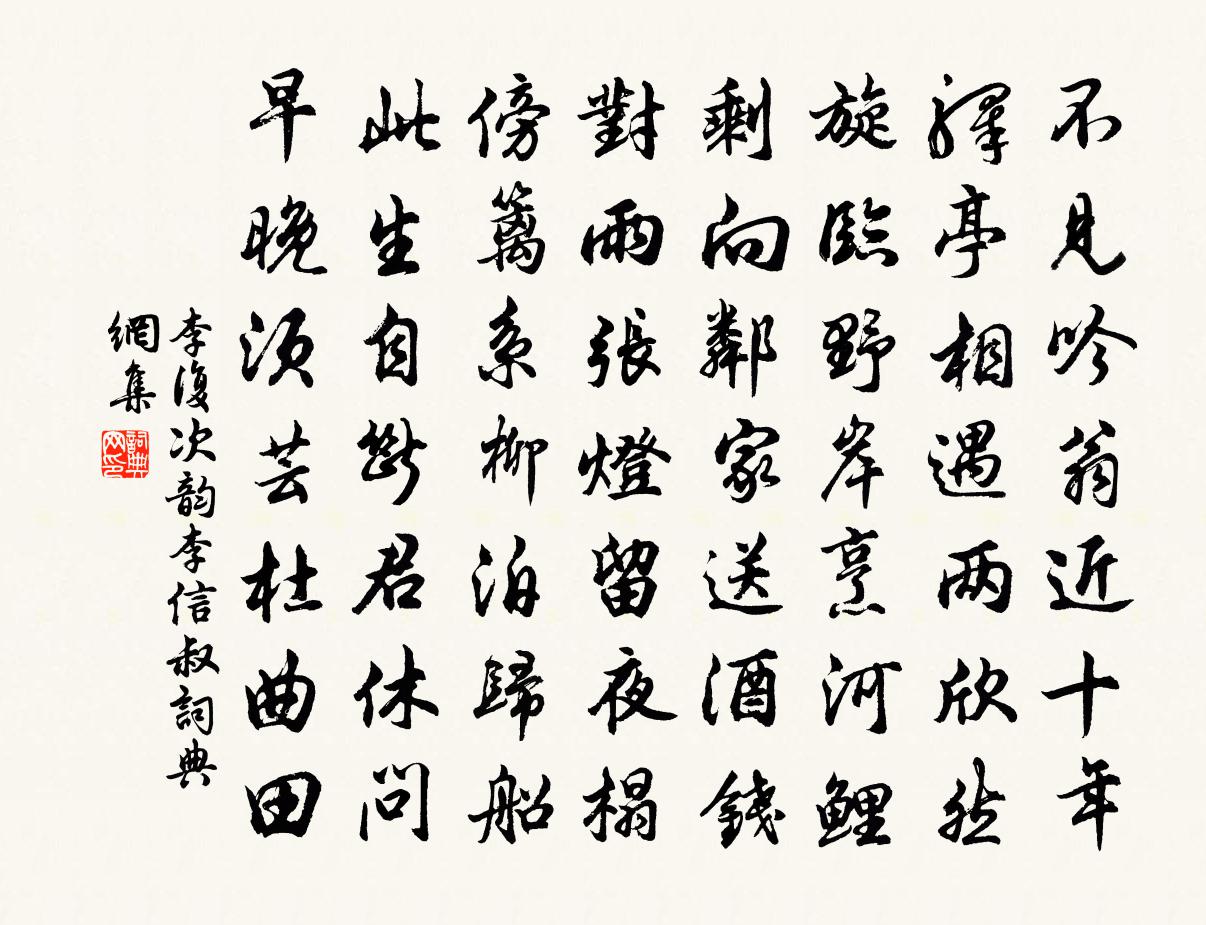 不見吟翁近十年
驛亭相遇两欣然
旋臨野岸烹河鯉
剩向鄰家送酒錢
對雨張燈留夜榻
傍篱系柳泊歸船
此生自斷君休問
早晚須芸杜曲田
李復次韵李信叔詞典
網集
詞典网印